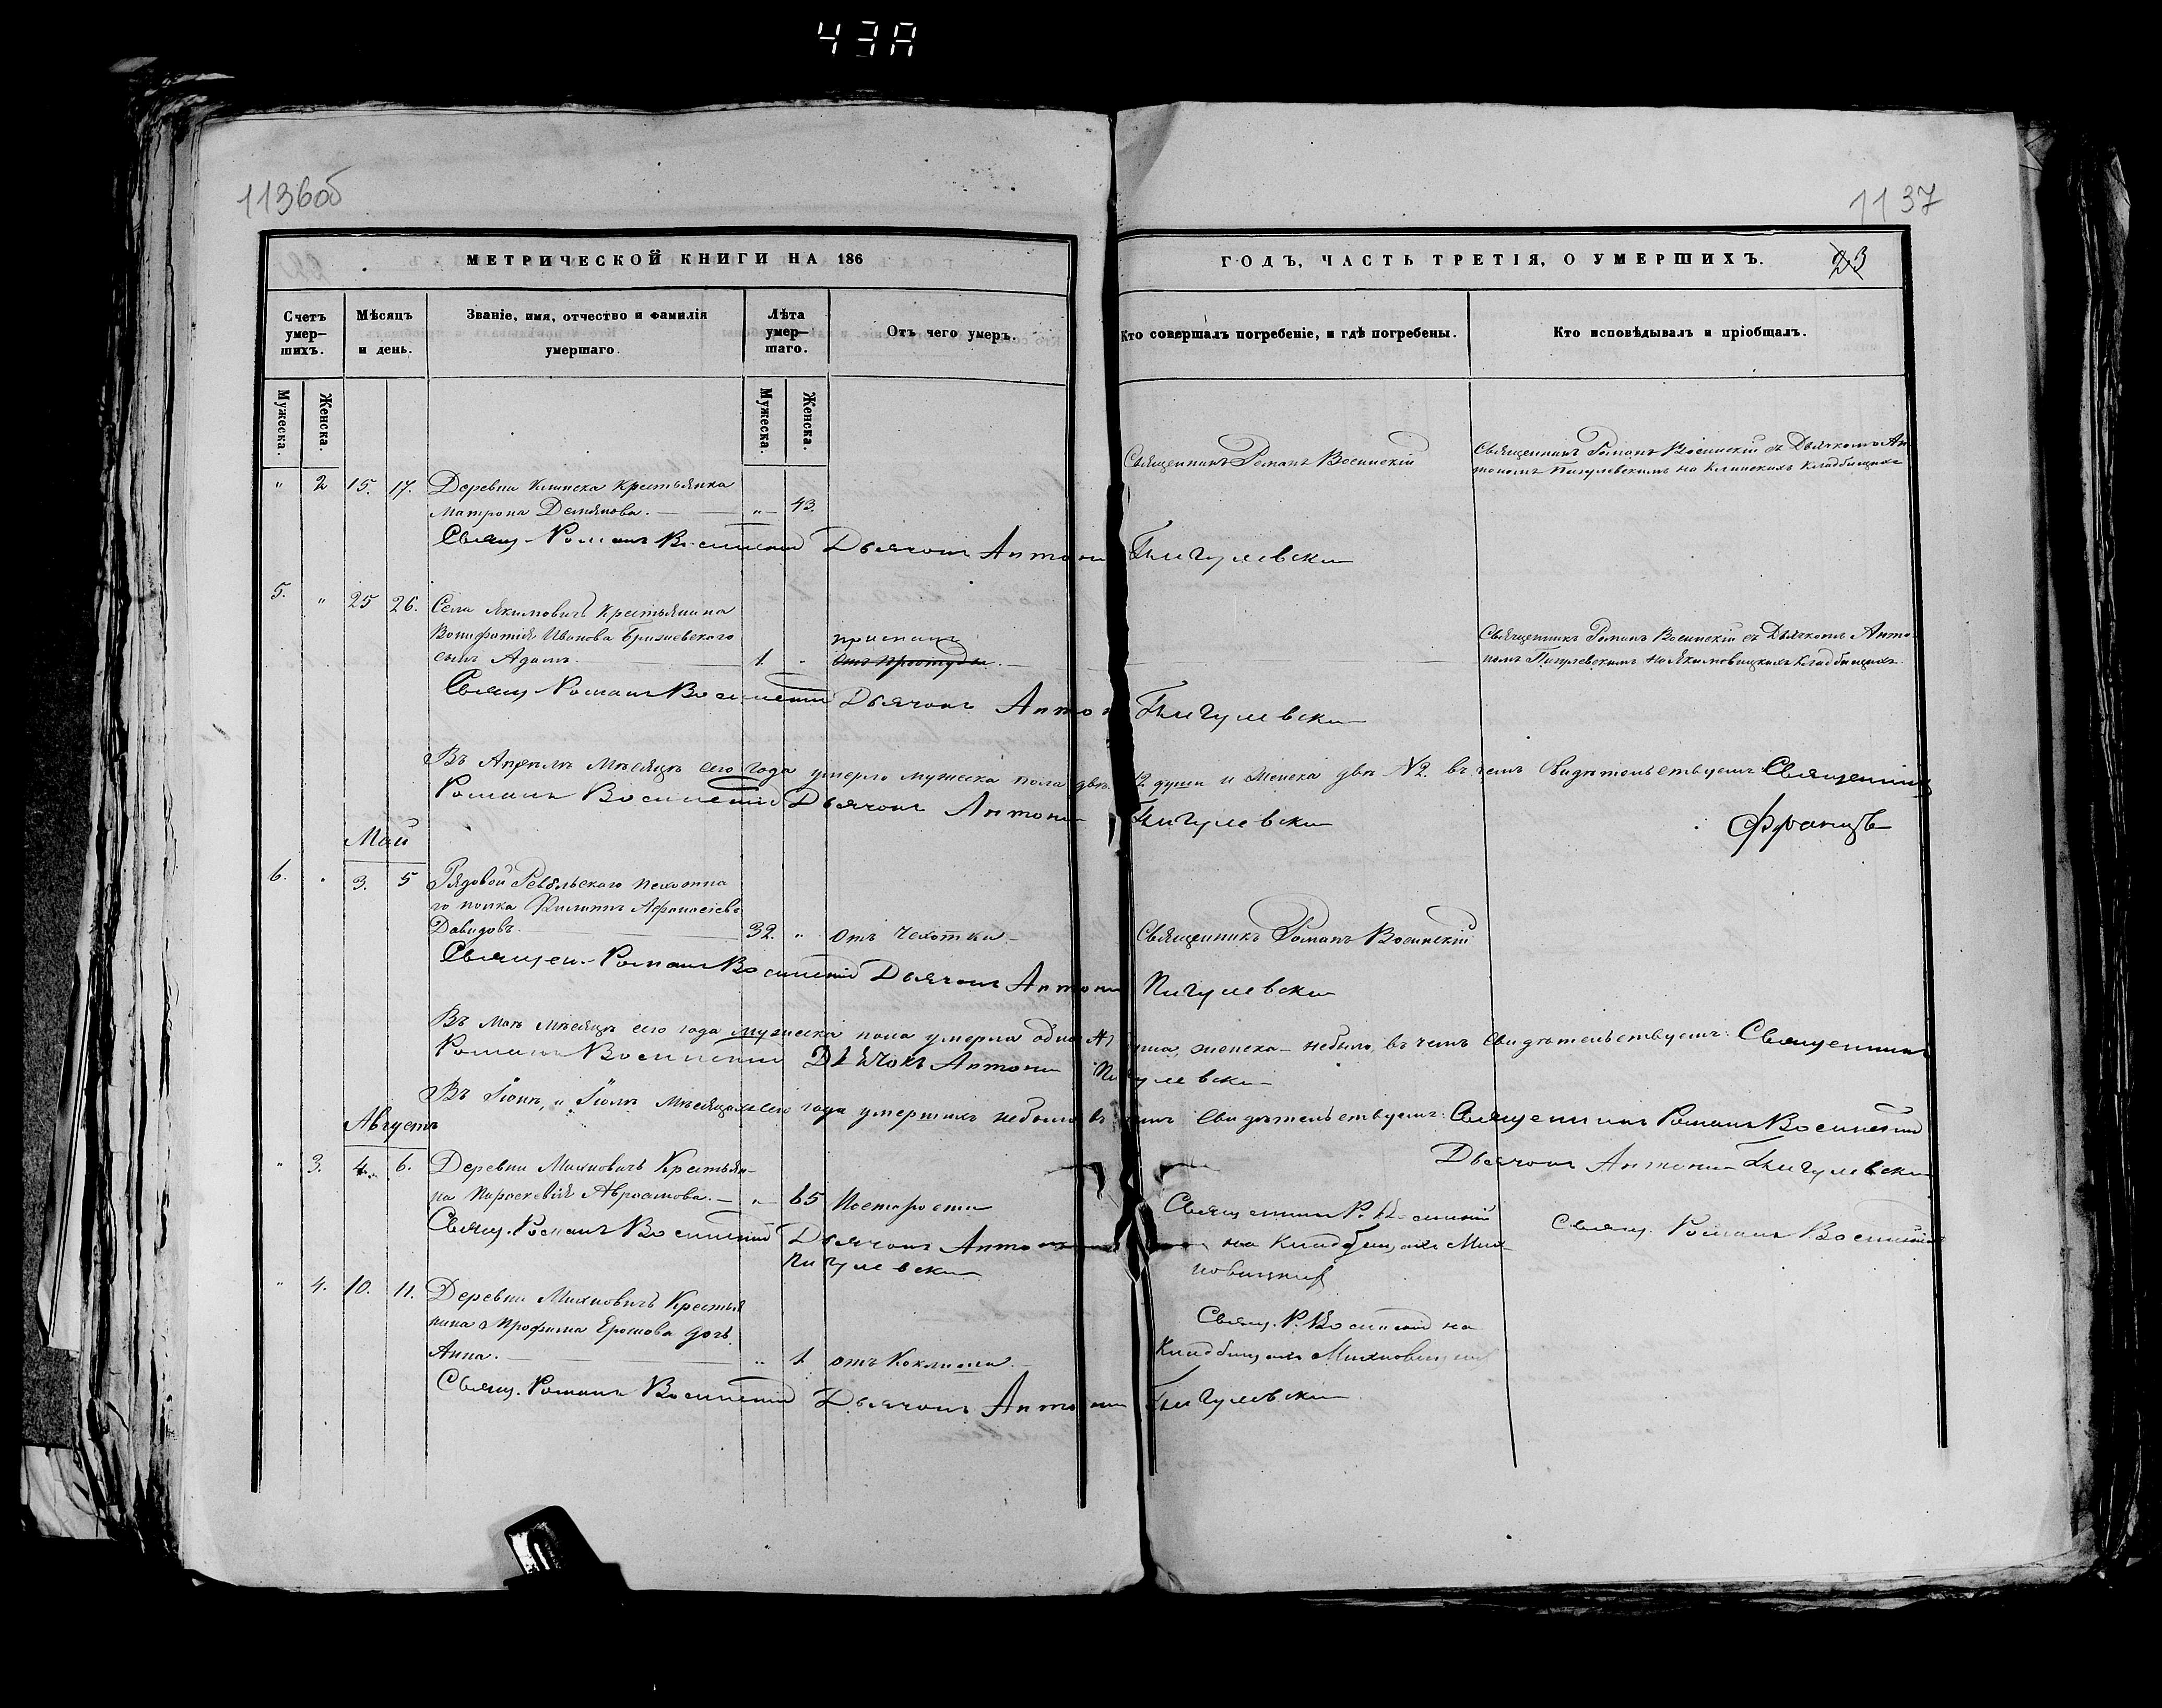 43A
1136об
1137
МЕТРИЧЕСКОЙ КНИГИ НА 186
ГОДЪ, ЧАСТЬ ТРЕТІЯ, О УМЕРШИХЪ.
23
Счетъ умер-шихъ.
Мѣсяцъ и день.
Званіе, имя, отчество и фамилія умершаго.
Лѣта умер-шаго.
Отъ чего умеръ.
Кто совершалъ погребеніе, и гдѣ погребены.
Кто исповѣдывалъ и пріобщалъ.
Мужеска.
Женска.
Мужеска.
Женска.
Священникъ Романъ Восинскій
Священникъ Романъ Восинскій съ Дьячкомъ Ан-
тономъ Пигулевскимъ на Клинскихъ Кладбищахъ
" 2 15. 17. Деревни Клинска Крестьянка
Матрона Демянова. " 43.
Свящ. Романъ Восинскій Дьячокъ Антоній Пигулевски
5. " 25 26. Села Якимовичъ Крестьянина
Вонифатія Иванова
сынъ Адамъ. 1. "
отъ простуды.
Священникъ Романъ Восинскій съ Дьячкомъ Анто-
номъ Пигулевскимъ на Якимовицкихъ Кладбищахъ.
Свящ. Романъ Восинскій Дьячокъ Антоній Пигулевски
Въ Апрелѣ Мѣсяцѣ сего года умерло мужеска пола двѣ 2 души и женска двѣ №2. въ чемъ свидѣтельствуемъ Священникъ
Романъ Восинскій Дьячокъ Антоній Пигулевски
Май
6. " 3. 5 Рядовой Ревельскаго пехотна
го полка Филипъ Афанасіевъ
Давидовъ. 32. " отъ чехотки.
Священникъ Романъ Восинскій
Священ. Романъ Восинскій Дьячокъ Антоній Пигулевски
Въ Маѣ Мѣсяцѣ сего года мужеска пола умерла одна душа, женска небыло, въ чемъ свидѣтельствуемъ: Священникъ
Романъ Восинскій Дьячокъ Антоній Пигулевски
Въ Іюнѣ, и Іюлѣ Мѣсяцахъ сего года умершихъ небыло въ чемъ свидѣтельствуемъ: Священникъ Романъ Восинскій
Дьячокъ Антоній Пигулевски
Августъ
" 3. 4. 6. Деревни Михновичъ Крестьян-
ка Параскевія Авраамова. " 65 По старости
Свящ. Романъ Восинскій Дьячокъ Антоній
Пигулевски
Священникъ Р. Восинскій
на Кладбищахъ Мих-
новицкихъ
Свящ. Романъ Восинскій
" 4. 10. 11. Деревни Михновичъ Крестья
нина Трофима дочь
Анна. " 1. отъ Коклюша.
Свящ. Р. Восинскій на
Кладбищахъ Михновицкихъ
Свящ. Романъ Восинскій Дьячокъ Антоній Пигулевски